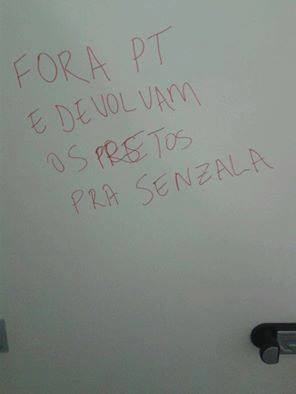 FORA PT
E DEVOLVAM
OS PRETOS
PRA SENZALA